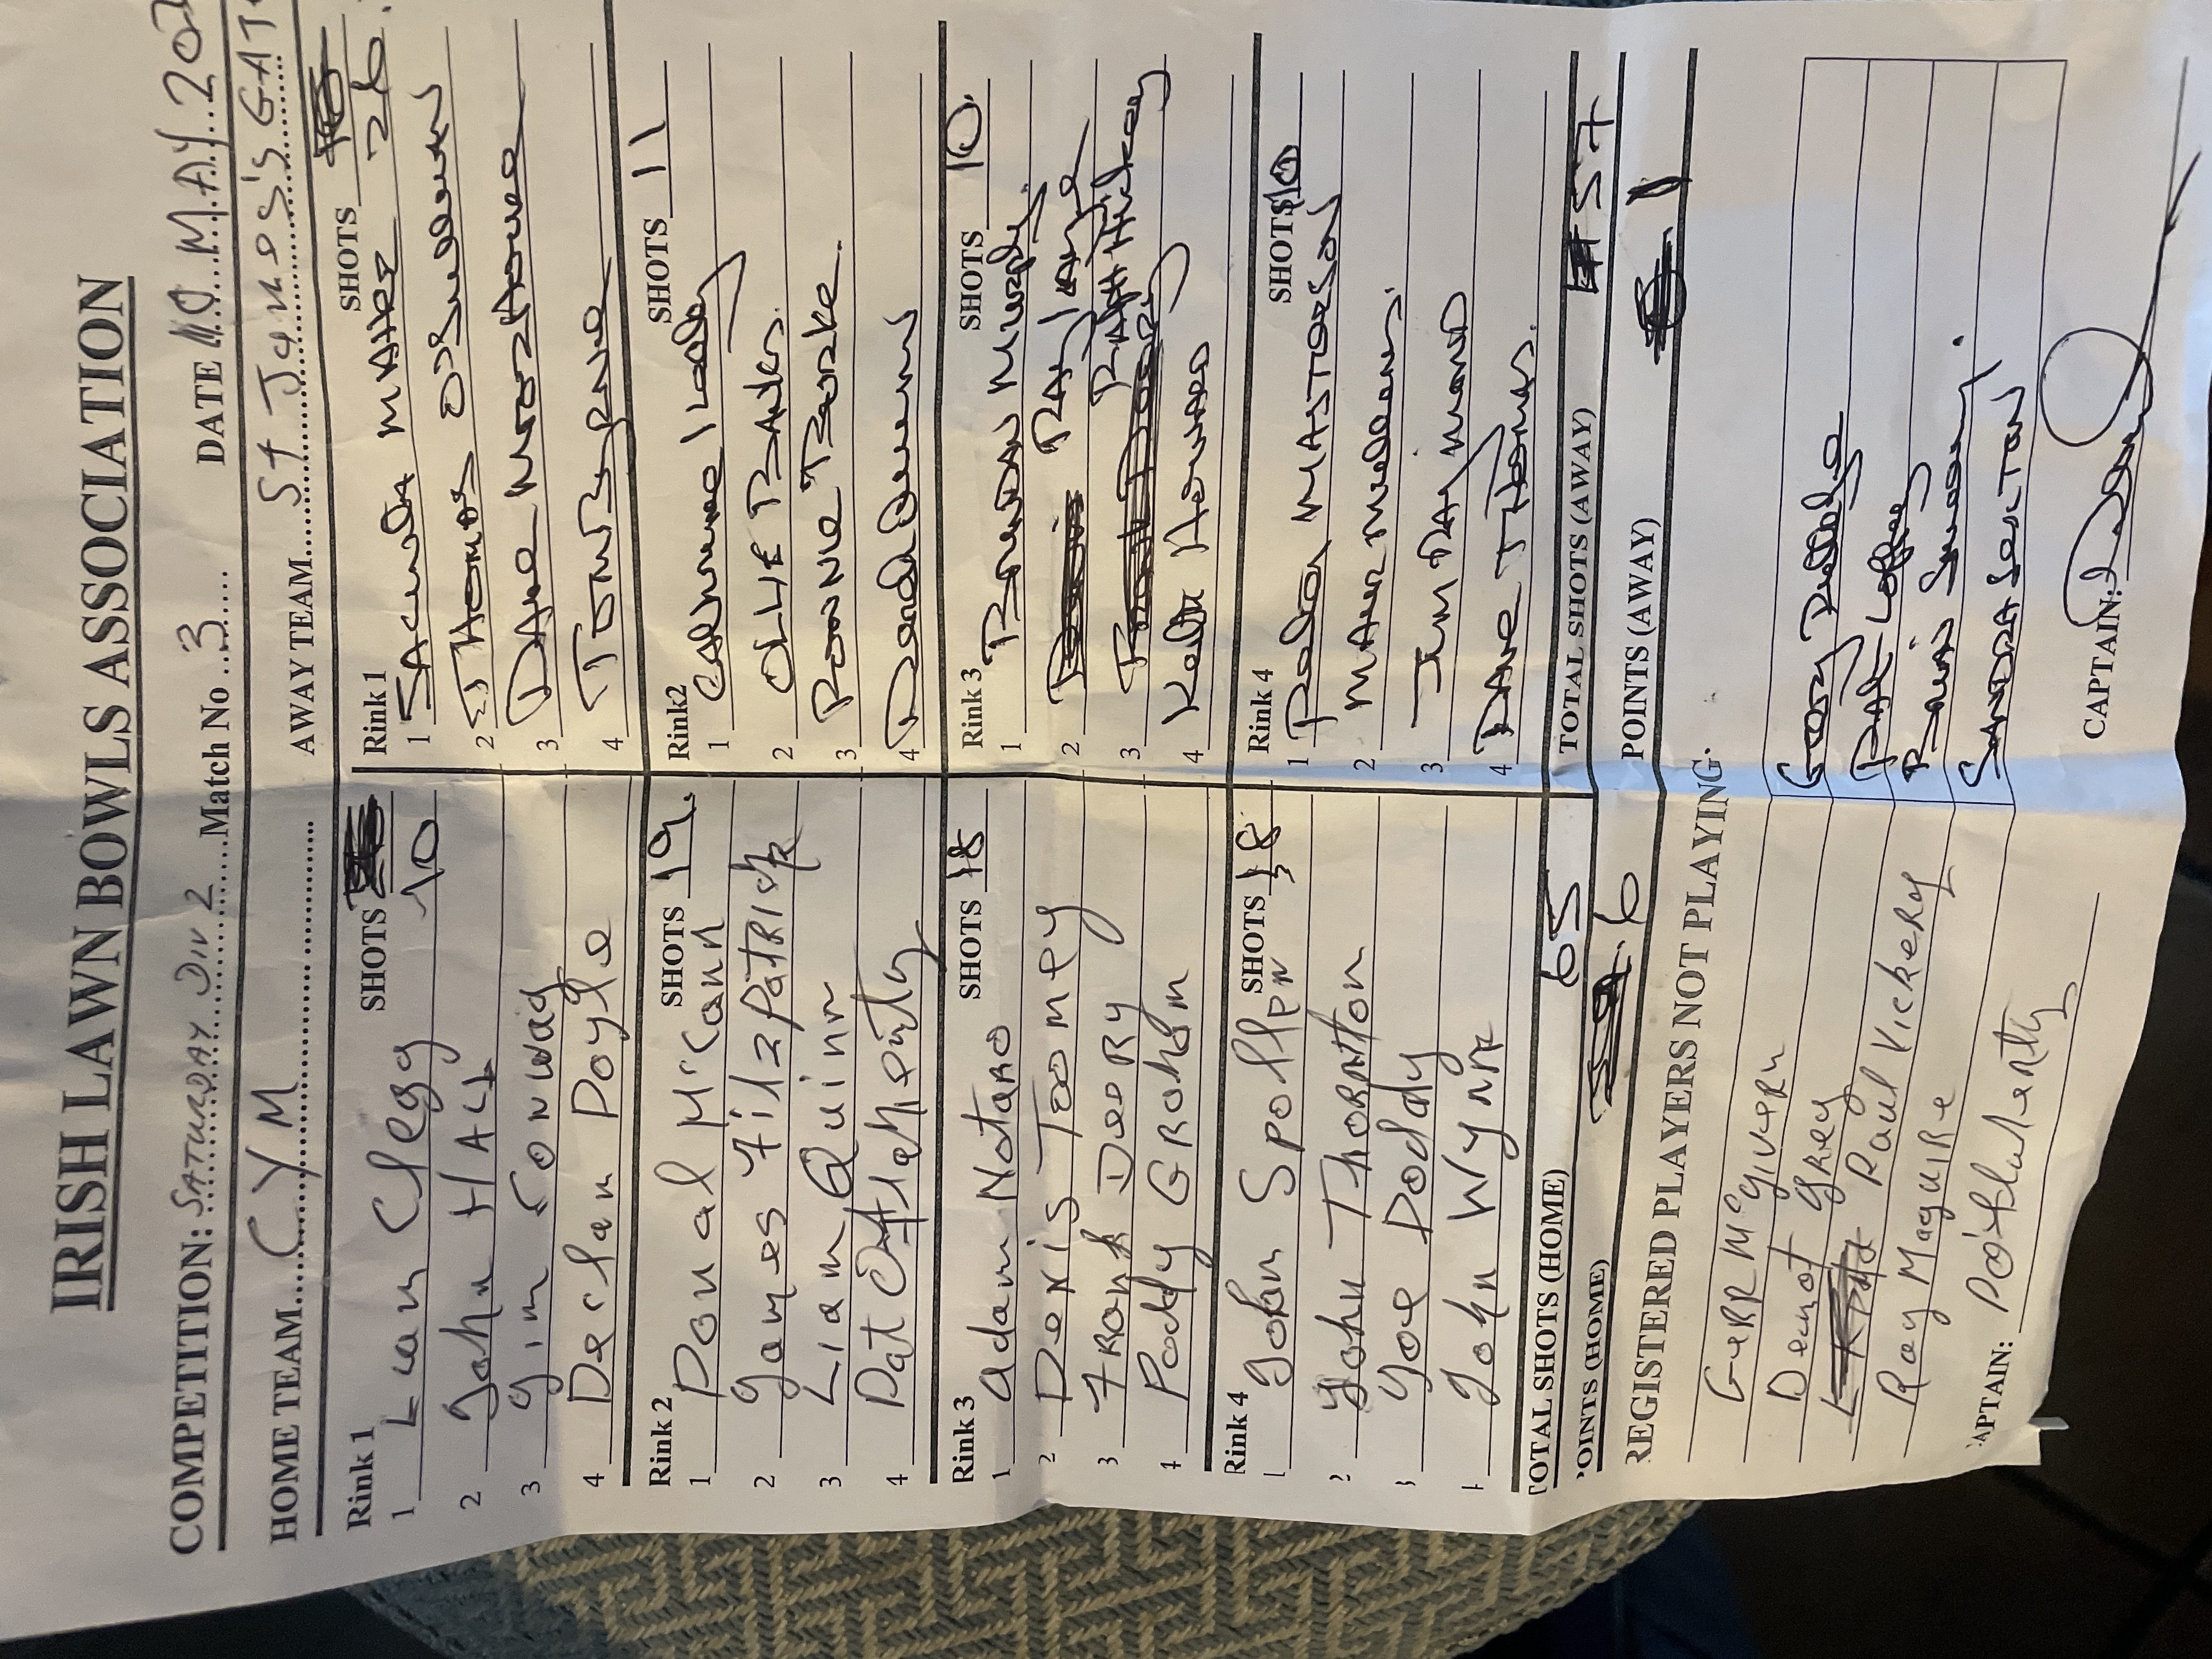 IRISH LAWN BOWLS ASSOCIATION
COMPETITION: SATURDAY DIV 2 Match No 3 DATE 10 MAY 202
HOME TEAM CYM AWAY TEAM St James's GATE
Rink 1 SHOTS 10
1 Lean Clegg
2 John HALL
3 Jim Conway
4 Declan Doyle
Rink 1 SHOTS 26
1 JACINTA MAHER
2 Thomas O'Sullivan
3 Dave
4 Tom Byrne
Rink 2 SHOTS 19
1 Donal McCann
2 James FitzpatRick
3 Liam Quinn
4 Pat O'Flaherty
Rink2 SHOTS 11
1 Carmel
2 OLLIE BANKS.
3 RONNIE BURKE.
4
Rink 3 SHOTS 18
1 Adam NotaRo
2 Denis Toomey
3 Frank Deery
4 Paddy GRaham
Rink 3 SHOTS 10.
1 BRENDAN Murphy
2 RAY
3 PAT Hickey
4 Keith Howard
Rink 4 SHOTS 18
1 John Spollen
2 John ThoRnton
3 Joe Doddy
4 John Wynne
Rink 4 SHOTS 10
1 Peter MASTERSON
2 MAUR Mulligan.
3 JIM RAYMOND
4 DAVE THOMAS.
TOTAL SHOTS (HOME) 65
TOTAL SHOTS (AWAY) 57
POINTS (HOME) 6
POINTS (AWAY) 1
REGISTERED PLAYERS NOT PLAYING.
GeRR McGivern
Demot GRey
Paul VickeRy
Ray MaguiRe
PAT
SANDRA SEXTON
CAPTAIN: P O'Flaherty
CAPTAIN: